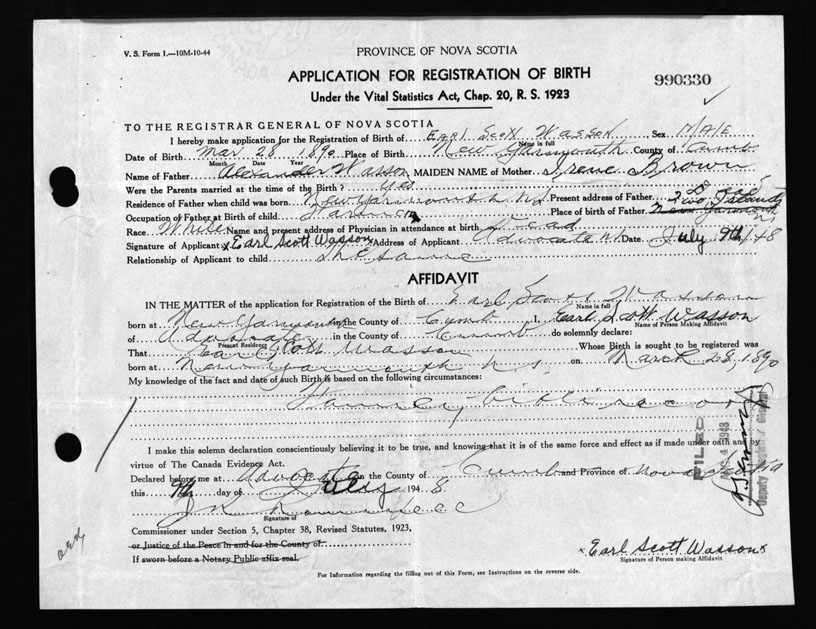 V. S. Form 1.—10M-10-44
PROVINCE OF NOVA SCOTIA
APPLICATION FOR REGISTRATION OF BIRTH
Under the Vital Statistics Act, Chap. 20, R. S. 1923
990330
TO THE REGISTRAR GENERAL OF NOVA SCOTIA
I hereby make application for the Registration of Birth of Earl Scott Wasson Sex MALE
Name in full
Date of Birth Mar 28 1890 Place of Birth New Yarmouth County of Cumb
Month Date Year
Name of Father Alexander Wasson MAIDEN NAME of Mother Irene Brown
Were the Parents married at the time of the Birth? Yes
Residence of Father when child was born New Yarmouth N S Present address of Father Dead
Two Islands
Occupation of Father at Birth of child Farmer Place of birth of Father New Yarmouth
Race White Name and present address of Physician in attendance at birth Dead
Signature of Applicant x Earl Scott Wasson Address of Applicant Advocate N.S. Date July 9th/48
Relationship of Applicant to child The Same
AFFIDAVIT
IN THE MATTER of the application for Registration of the Birth of Earl Scott Wasson
Name in full
born at New Yarmouth in the County of Cumb I, Earl Scott Wasson
Name of Person Making Affidavit
of Advocate in the County of Cumb do solemnly declare:
Present Residence
That Earl Scott Wasson Whose Birth is sought to be registered was
born at New Yarmouth N S on March 28, 1890
My knowledge of the fact and date of such Birth is based on the following circumstances:
Family bible record
I make this solemn declaration conscientiously believing it to be true, and knowing that it is of the same force and effect as if made under oath and by
virtue of The Canada Evidence Act.
Declared before me at Advocate in the County of Cumb and Province of Nova Scotia
this 9th day of July 1948
Signature of
Commissioner under Section 5, Chapter 38, Revised Statutes, 1923,
or Justice of the Peace in and for the County of
If sworn before a Notary Public affix seal.
x Earl Scott Wasson x
Signature of Person making Affidavit
For Information regarding the filling out of this Form, see Instructions on the reverse side.
FILED
AUG 4 1948
Deputy Registrar General